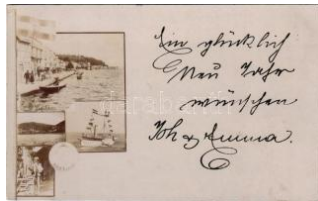 Ein glücklich
Neu Jahr
wünschen
Joh & Emma.